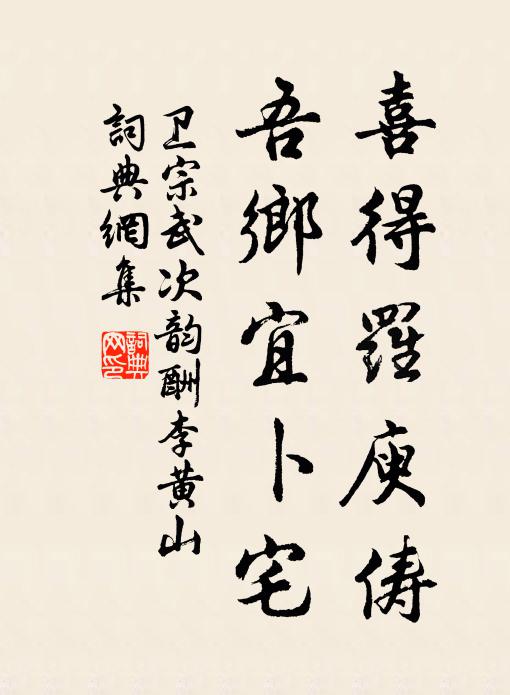 喜得羅庾儔
吾鄉宜卜宅
卫宗武次韵酬李黄山
詞典網集
詞典网印